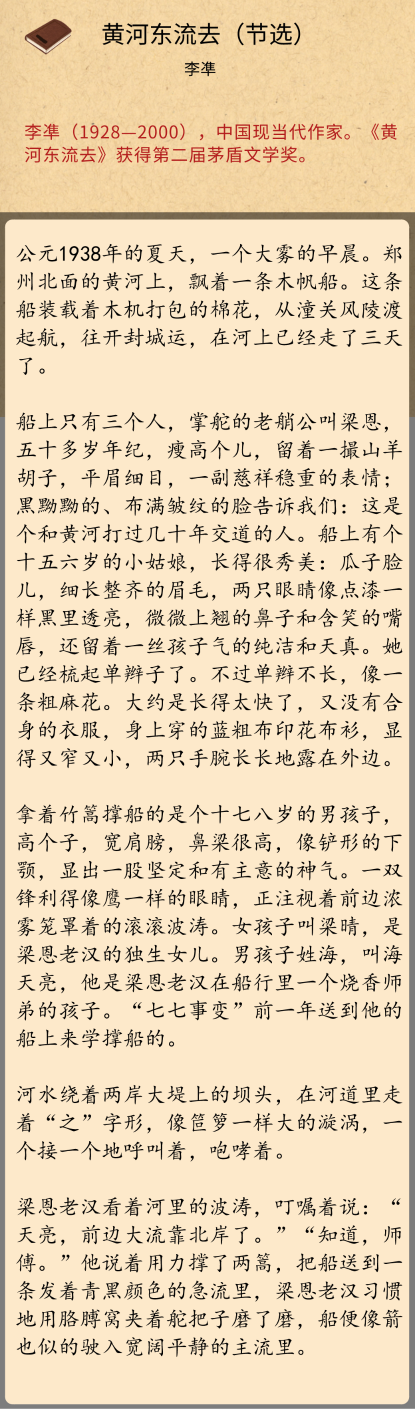 黄河东流去（节选）
李凖
李凖（1928—2000），中国现当代作家。《黄
河东流去》获得第二届茅盾文学奖。
公元1938年的夏天，一个大雾的早晨。郑
州北面的黄河上，飘着一条木帆船。这条
船装载着木机打包的棉花，从潼关风陵渡
起航，往开封城运，在河上已经走了三天
了。
船上只有三个人，掌舵的老艄公叫梁恩，
五十多岁年纪，瘦高个儿，留着一撮山羊
胡子，平眉细目，一副慈祥稳重的表情；
黑黝黝的、布满皱纹的脸告诉我们：这是
个和黄河打过几十年交道的人。船上有个
十五六岁的小姑娘，长得很秀美：瓜子脸
儿，细长整齐的眉毛，两只眼睛像点漆一
样黑里透亮，微微上翘的鼻子和含笑的嘴
唇，还留着一丝孩子气的纯洁和天真。她
已经梳起单辫子了。不过单辫不长，像一
条粗麻花。大约是长得太快了，又没有合
身的衣服，身上穿的蓝粗布印花布衫，显
得又窄又小，两只手腕长长地露在外边。
拿着竹篙撑船的是个十七八岁的男孩子，
高个子，宽肩膀，鼻梁很高，像铲形的下
颚，显出一股坚定和有主意的神气。一双
锋利得像鹰一样的眼睛，正注视着前边浓
雾笼罩着的滚滚波涛。女孩子叫梁晴，是
梁恩老汉的独生女儿。男孩子姓海，叫海
天亮，他是梁恩老汉在船行里一个烧香师
弟的孩子。“七七事变”前一年送到他的
船上来学撑船的。
河水绕着两岸大堤上的坝头，在河道里走
着“之”字形，像笸箩一样大的漩涡，一
个接一个地呼叫着，咆哮着。
梁恩老汉看着河里的波涛，叮嘱着说：“
天亮，前边大流靠北岸了。”“知道，师
傅。”他说着用力撑了两篙，把船送到一
条发着青黑颜色的急流里，梁恩老汉习惯
地用胳膊窝夹着舵把子磨了磨，船便像箭
也似的驶入宽阔平静的主流里。